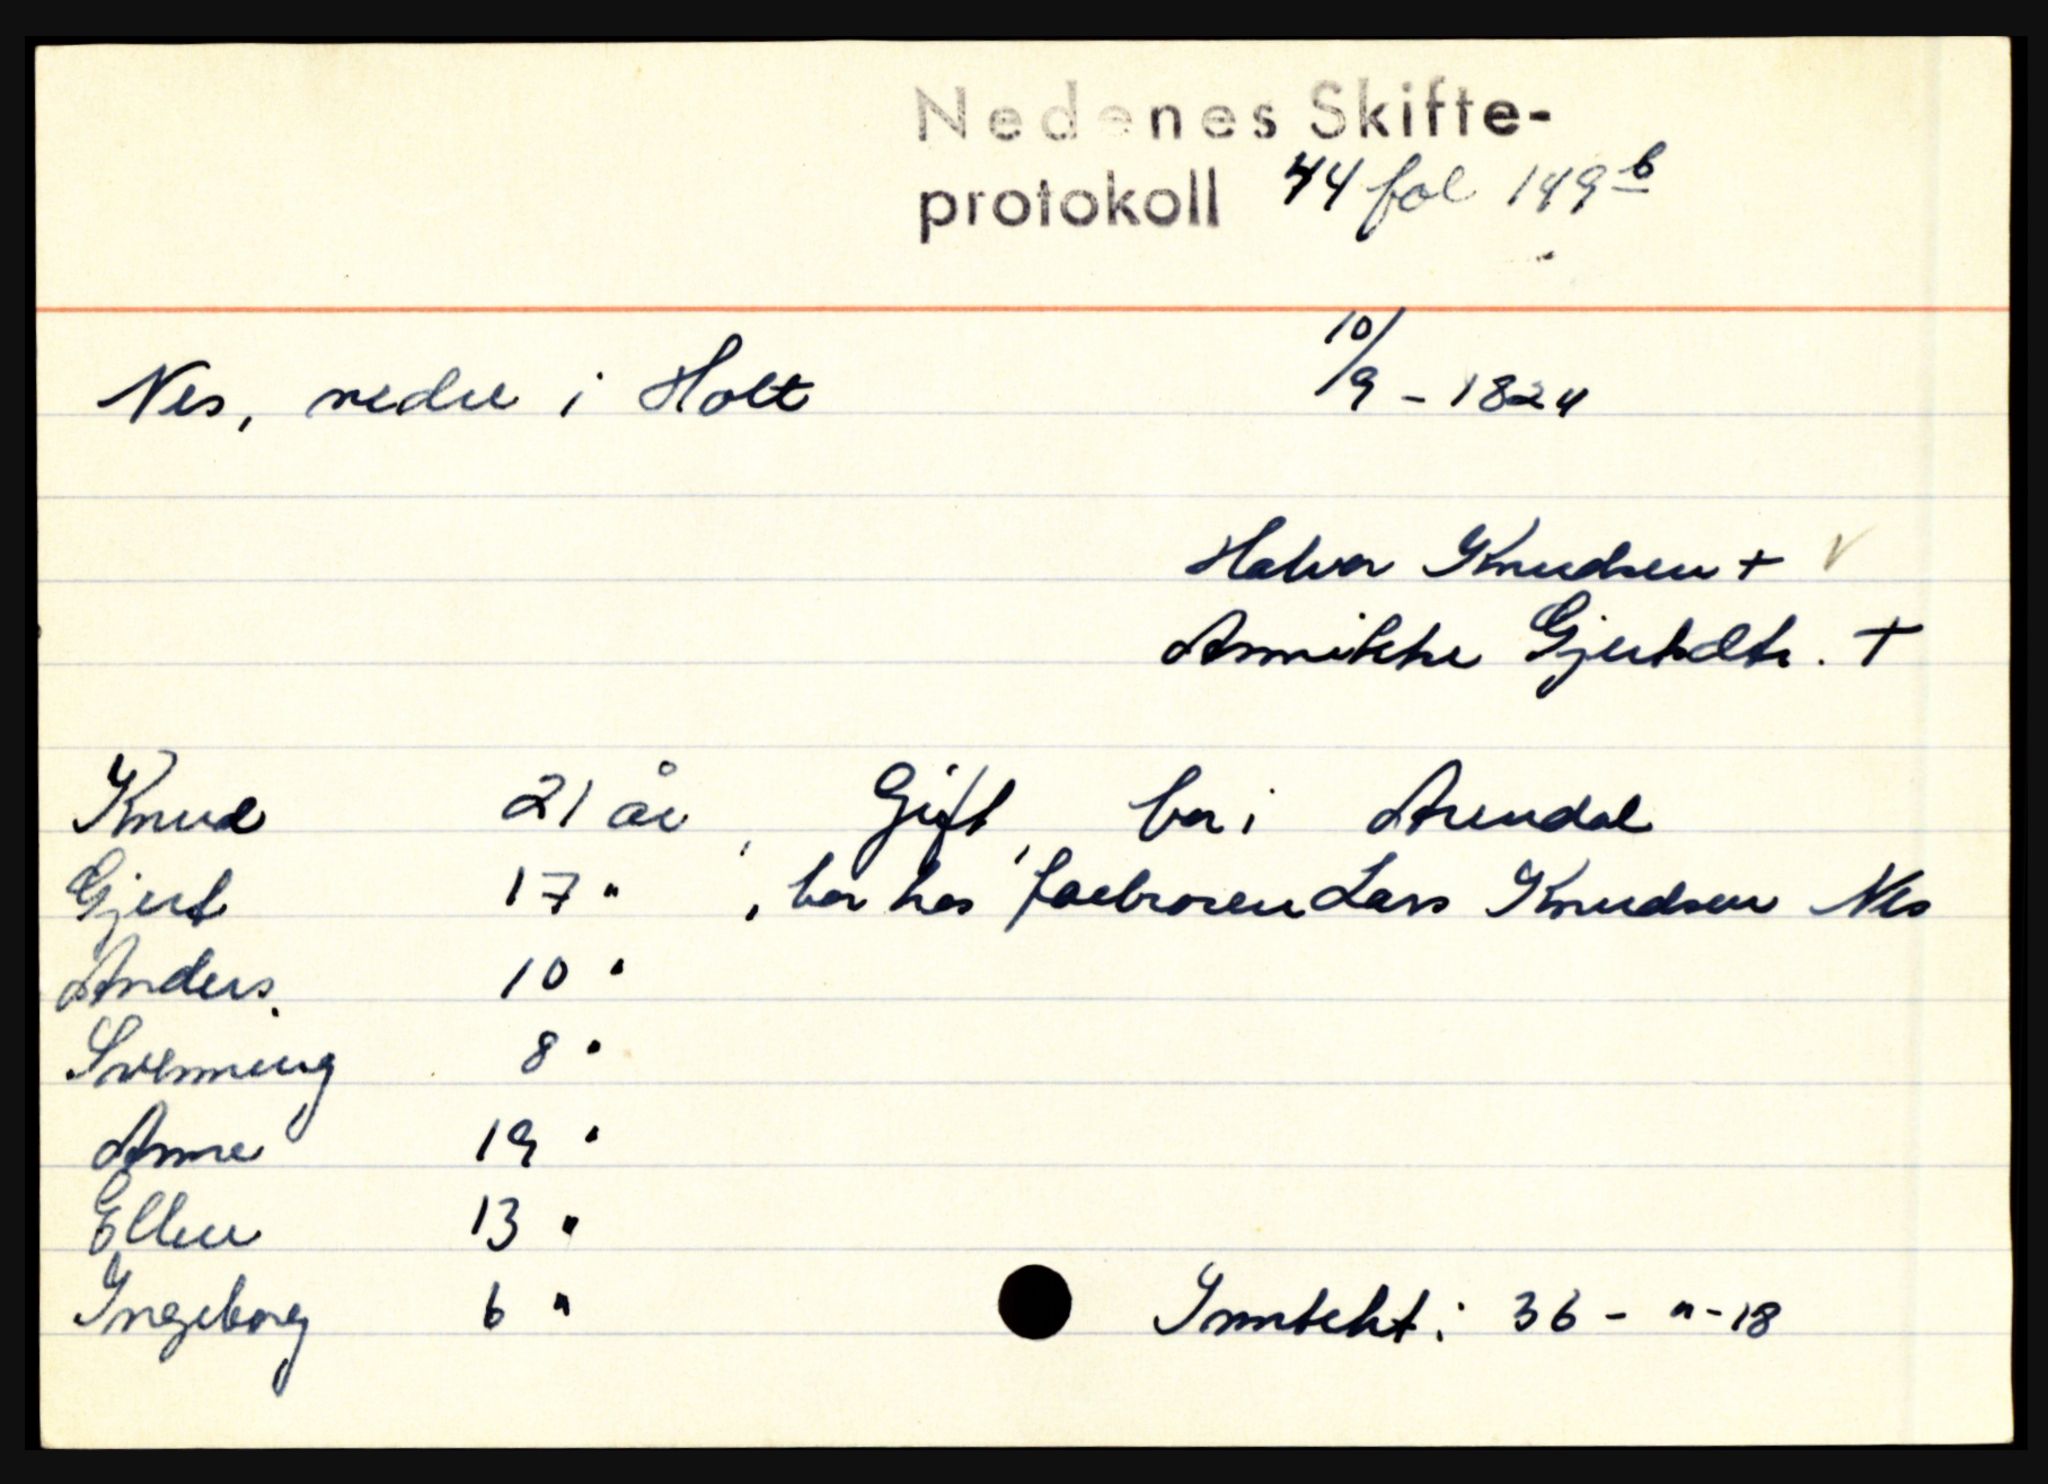 Nedenes Skifte-
protokoll 44 fol 149 b
Nes, nedre i Holt 10/9 - 1824
Halvor Knudsen +
Annikke Gjertsdtr. +
Knud 21 år, Gift, bor i Arendal
Gjert 17 " , bor hos farbroren Lars Knudsen Nes
Anders 10 "
Svenning 8 "
Anne 19 "
Ellen 13 "
Ingeborg 6 "
Inntekt: 36 - " - 18